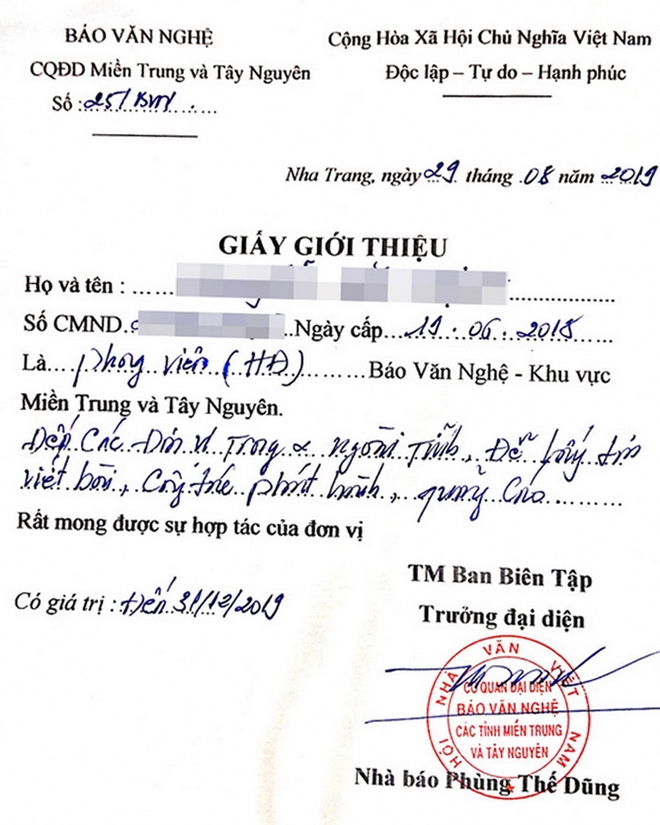 BÁO VĂN NGHỆ
CQĐD Miền Trung và Tây Nguyên
Số : 25/BVN
Cộng Hòa Xã Hội Chủ Nghĩa Việt Nam
Độc lập – Tự do – Hạnh phúc
Nha Trang, ngày 29 tháng 08 năm 2019
GIẤY GIỚI THIỆU
Họ và tên :
Số CMND. Ngày cấp 19.06.2018
Là phóng viên (HĐ) Báo Văn Nghệ - Khu vực
Miền Trung và Tây Nguyên.
Đến Các Đơn vị Trong & Ngoài Tỉnh, Để lấy tin
viết bài, Cộng tác phát hành, quảng Cáo
Rất mong được sự hợp tác của đơn vị
Có giá trị : Đến 31/12/2019
TM Ban Biên Tập
Trưởng đại diện
HỘI NHÀ VĂN VIỆT NAM
CƠ QUAN ĐẠI DIỆN
BÁO VĂN NGHỆ
CÁC TỈNH MIỀN TRUNG
VÀ TÂY NGUYÊN
Nhà báo Phùng Thế Dũng